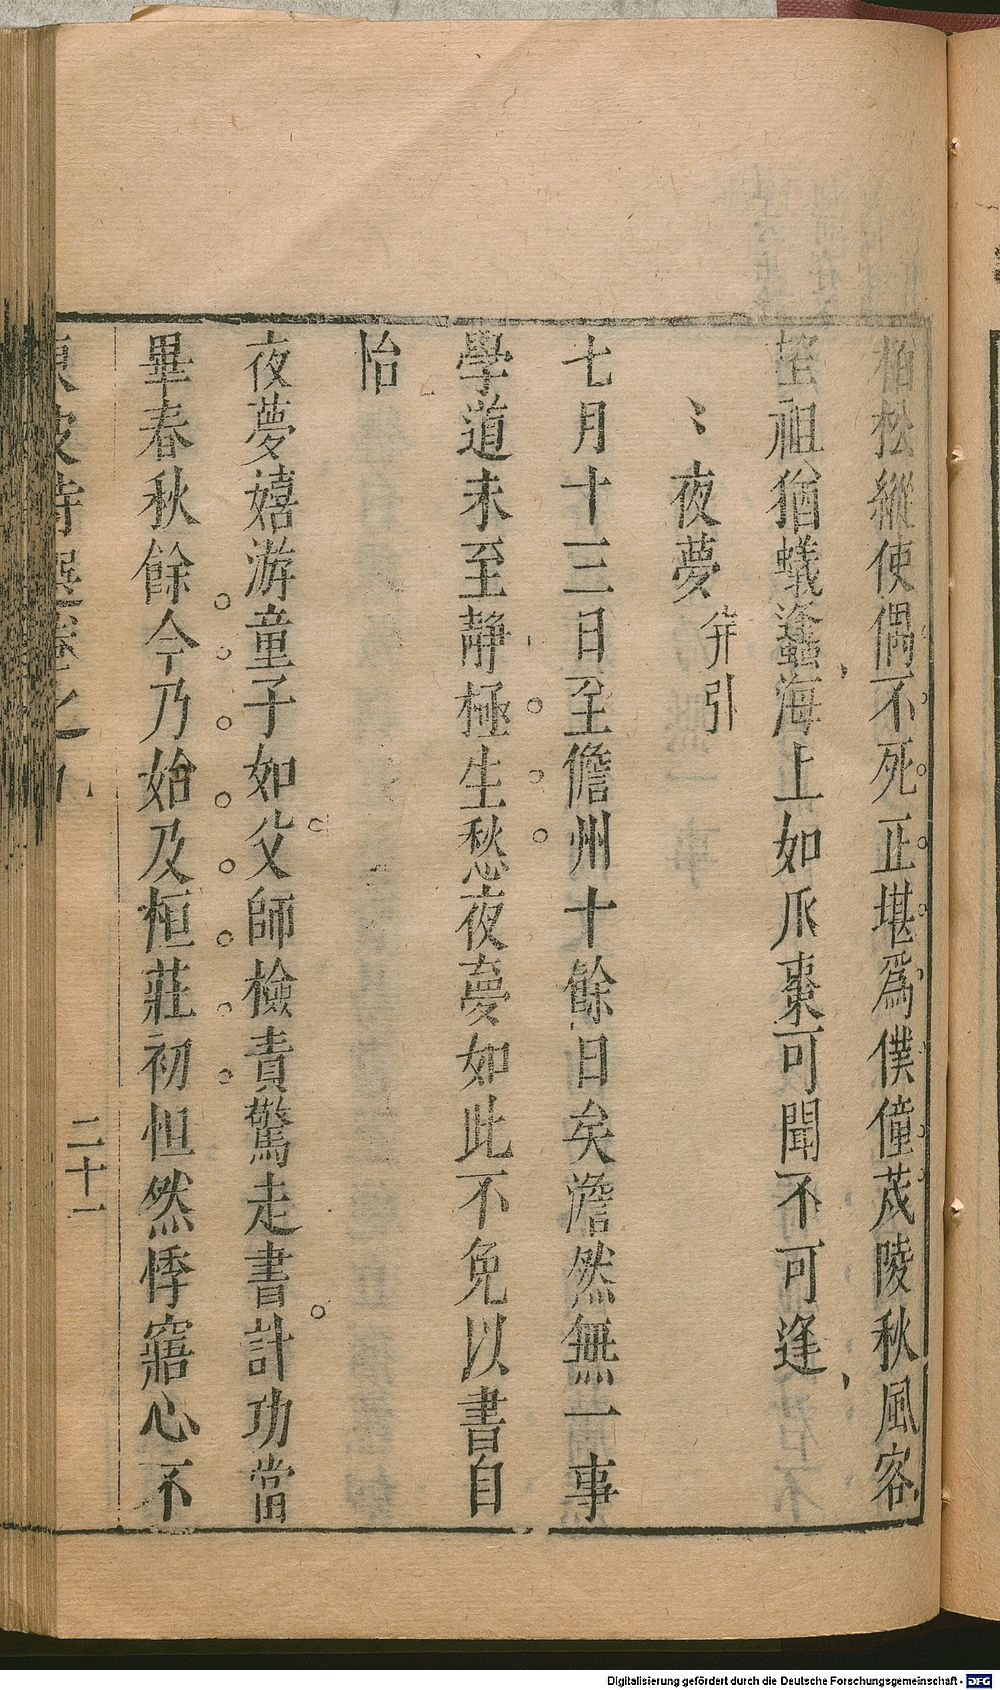 栢松縱使偶不死正堪爲僕僮茂陵秋風客
祖猶蟻蠭海上如爪棗可聞不可逢
夜夢 并引
七月十三日至儋州十餘日矣澹然無一事
學道未至静極生愁夜夢如此不免以書自
怡
夜夢嬉游童子如父師檢責驚走書計功當
畢春秋餘今乃始及桓莊初怛然悸寤心不
東坡詩選卷之九
二十一
Digitalisierung gefördert durch die Deutsche Forschungsgemeinschaft - DFG